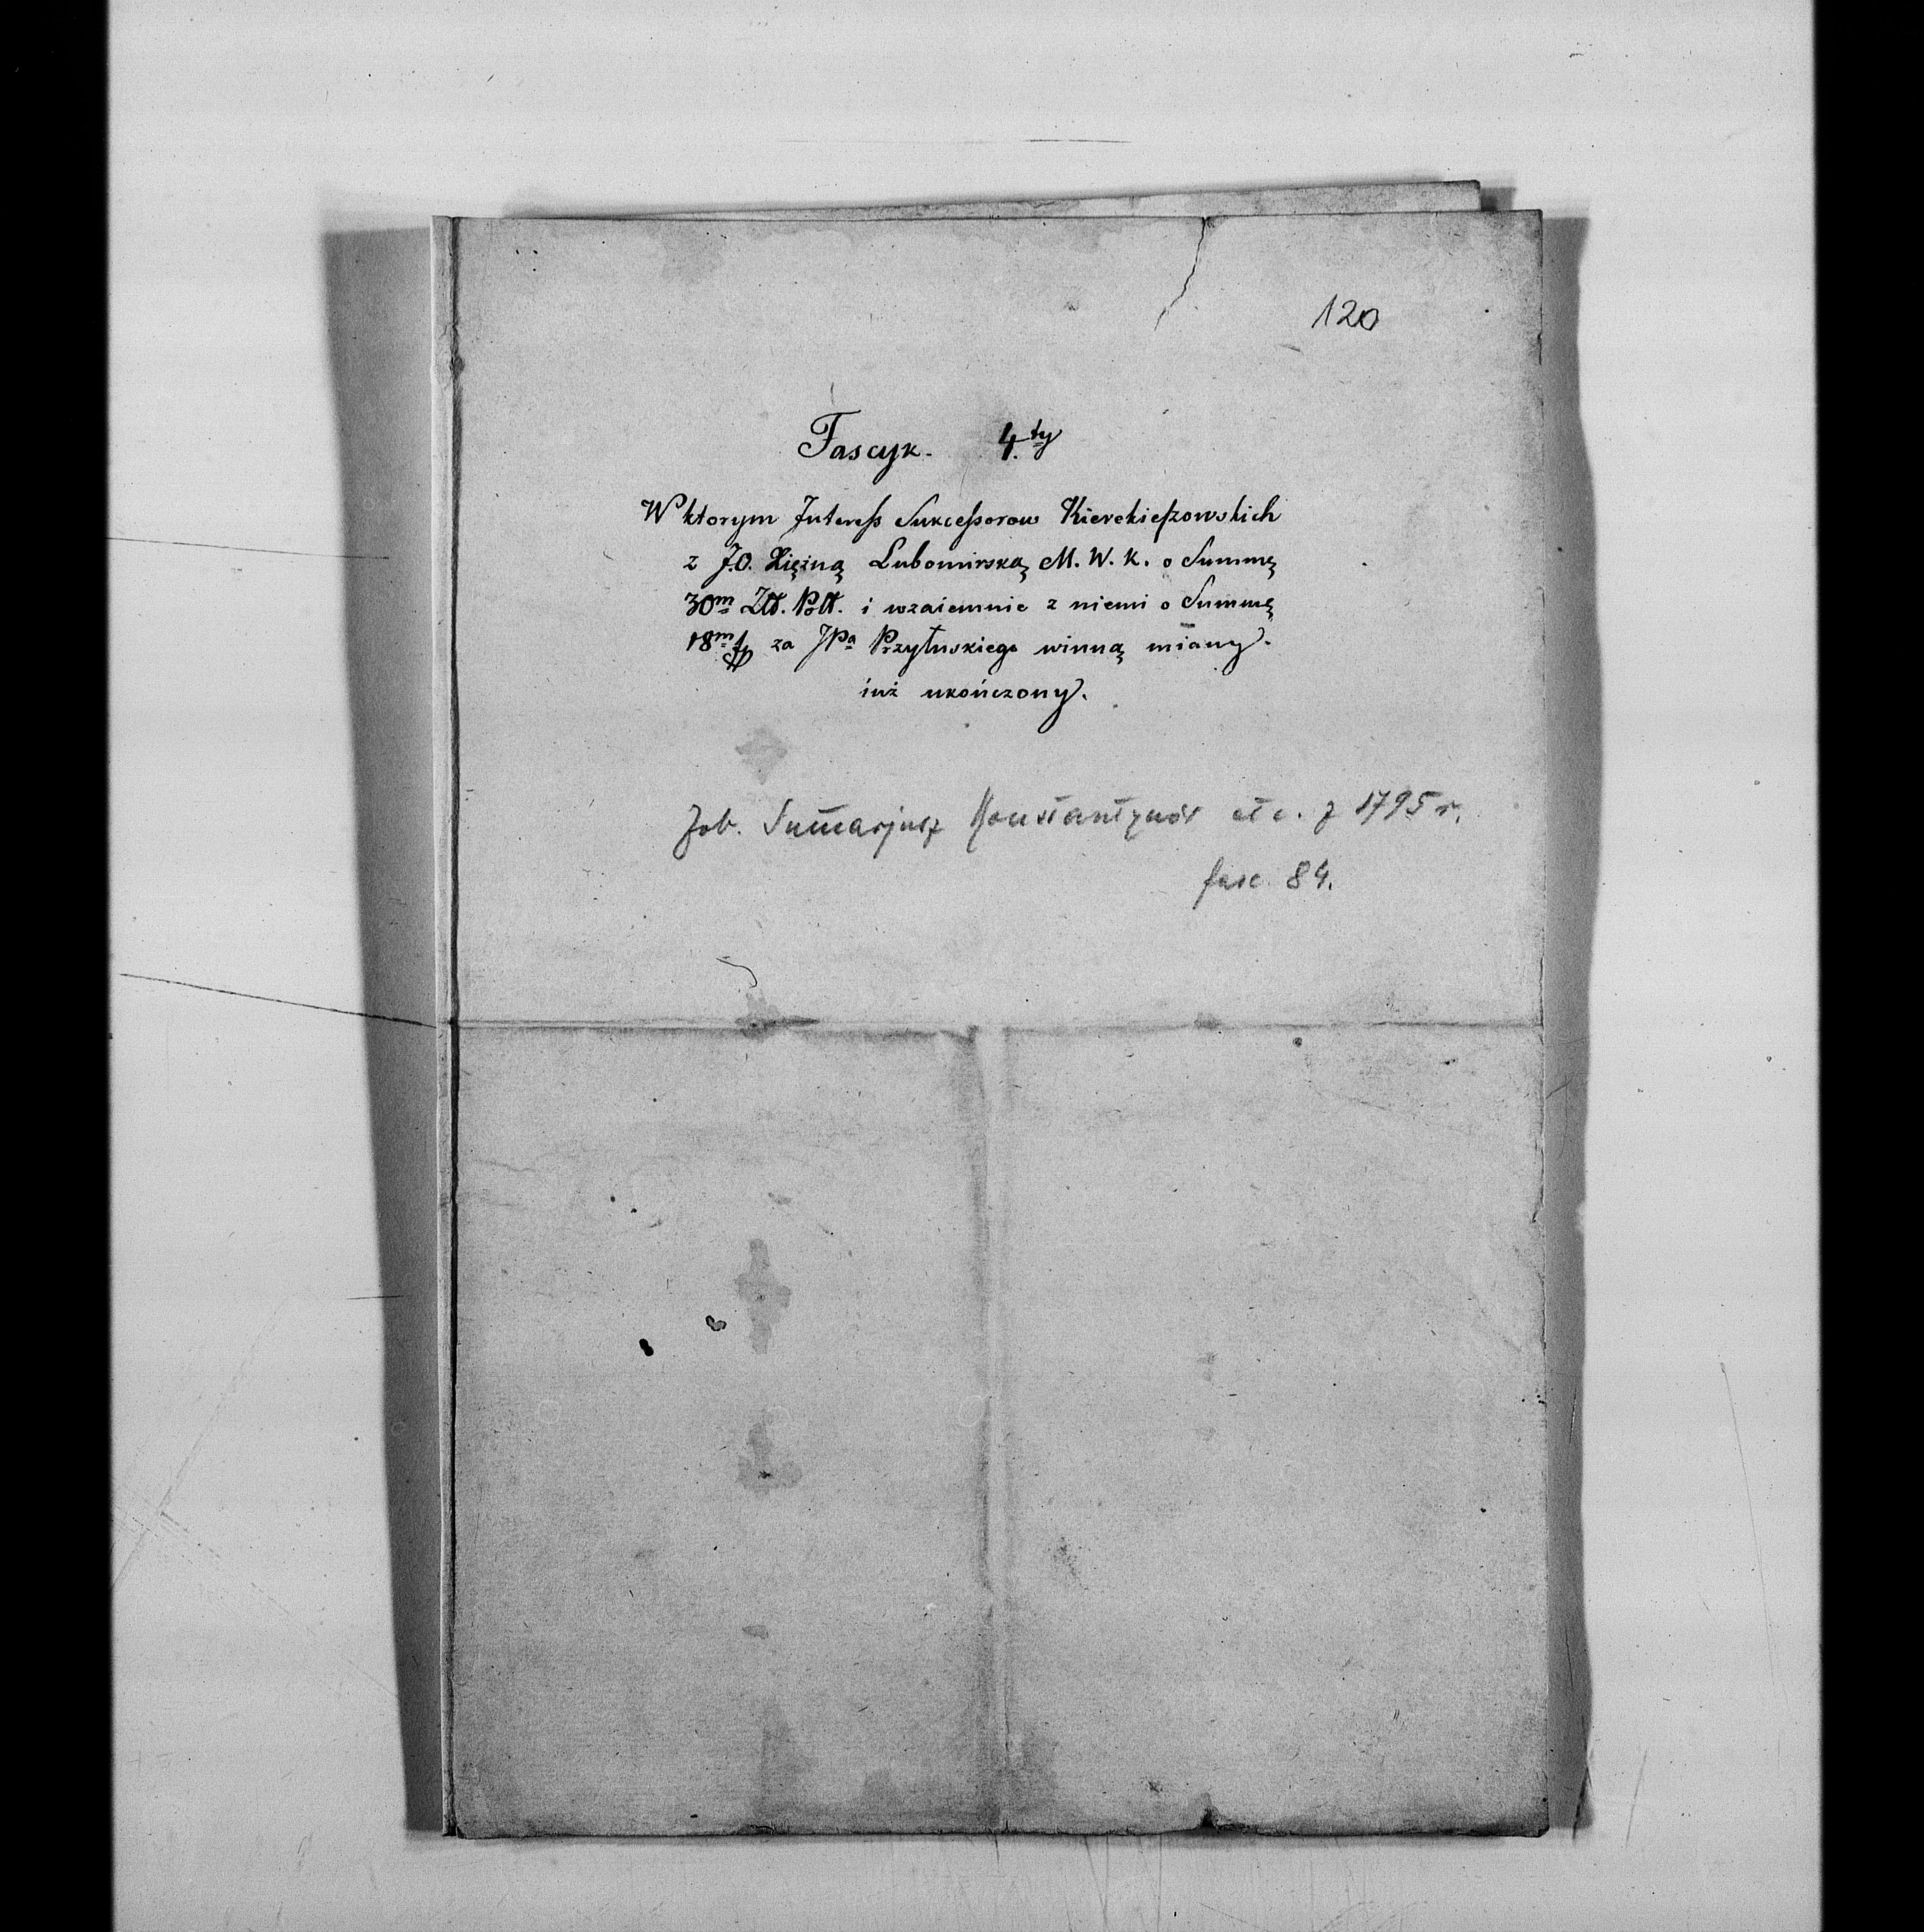 120
Fascyk. 4.ty
W ktorym Interess Sukcessorow Kierekieszowskich
z J.O. Xiężną Lubomirską M. W. K. o Summę
30m Złt. Polt. i wzaiemnie z niemi o Summę
18m za JPa Przyłuskiego winną miany.
iuż ukończony.
Zob. Sumarjusz Konstantynów etc. z 1795 r.
fasc. 84.